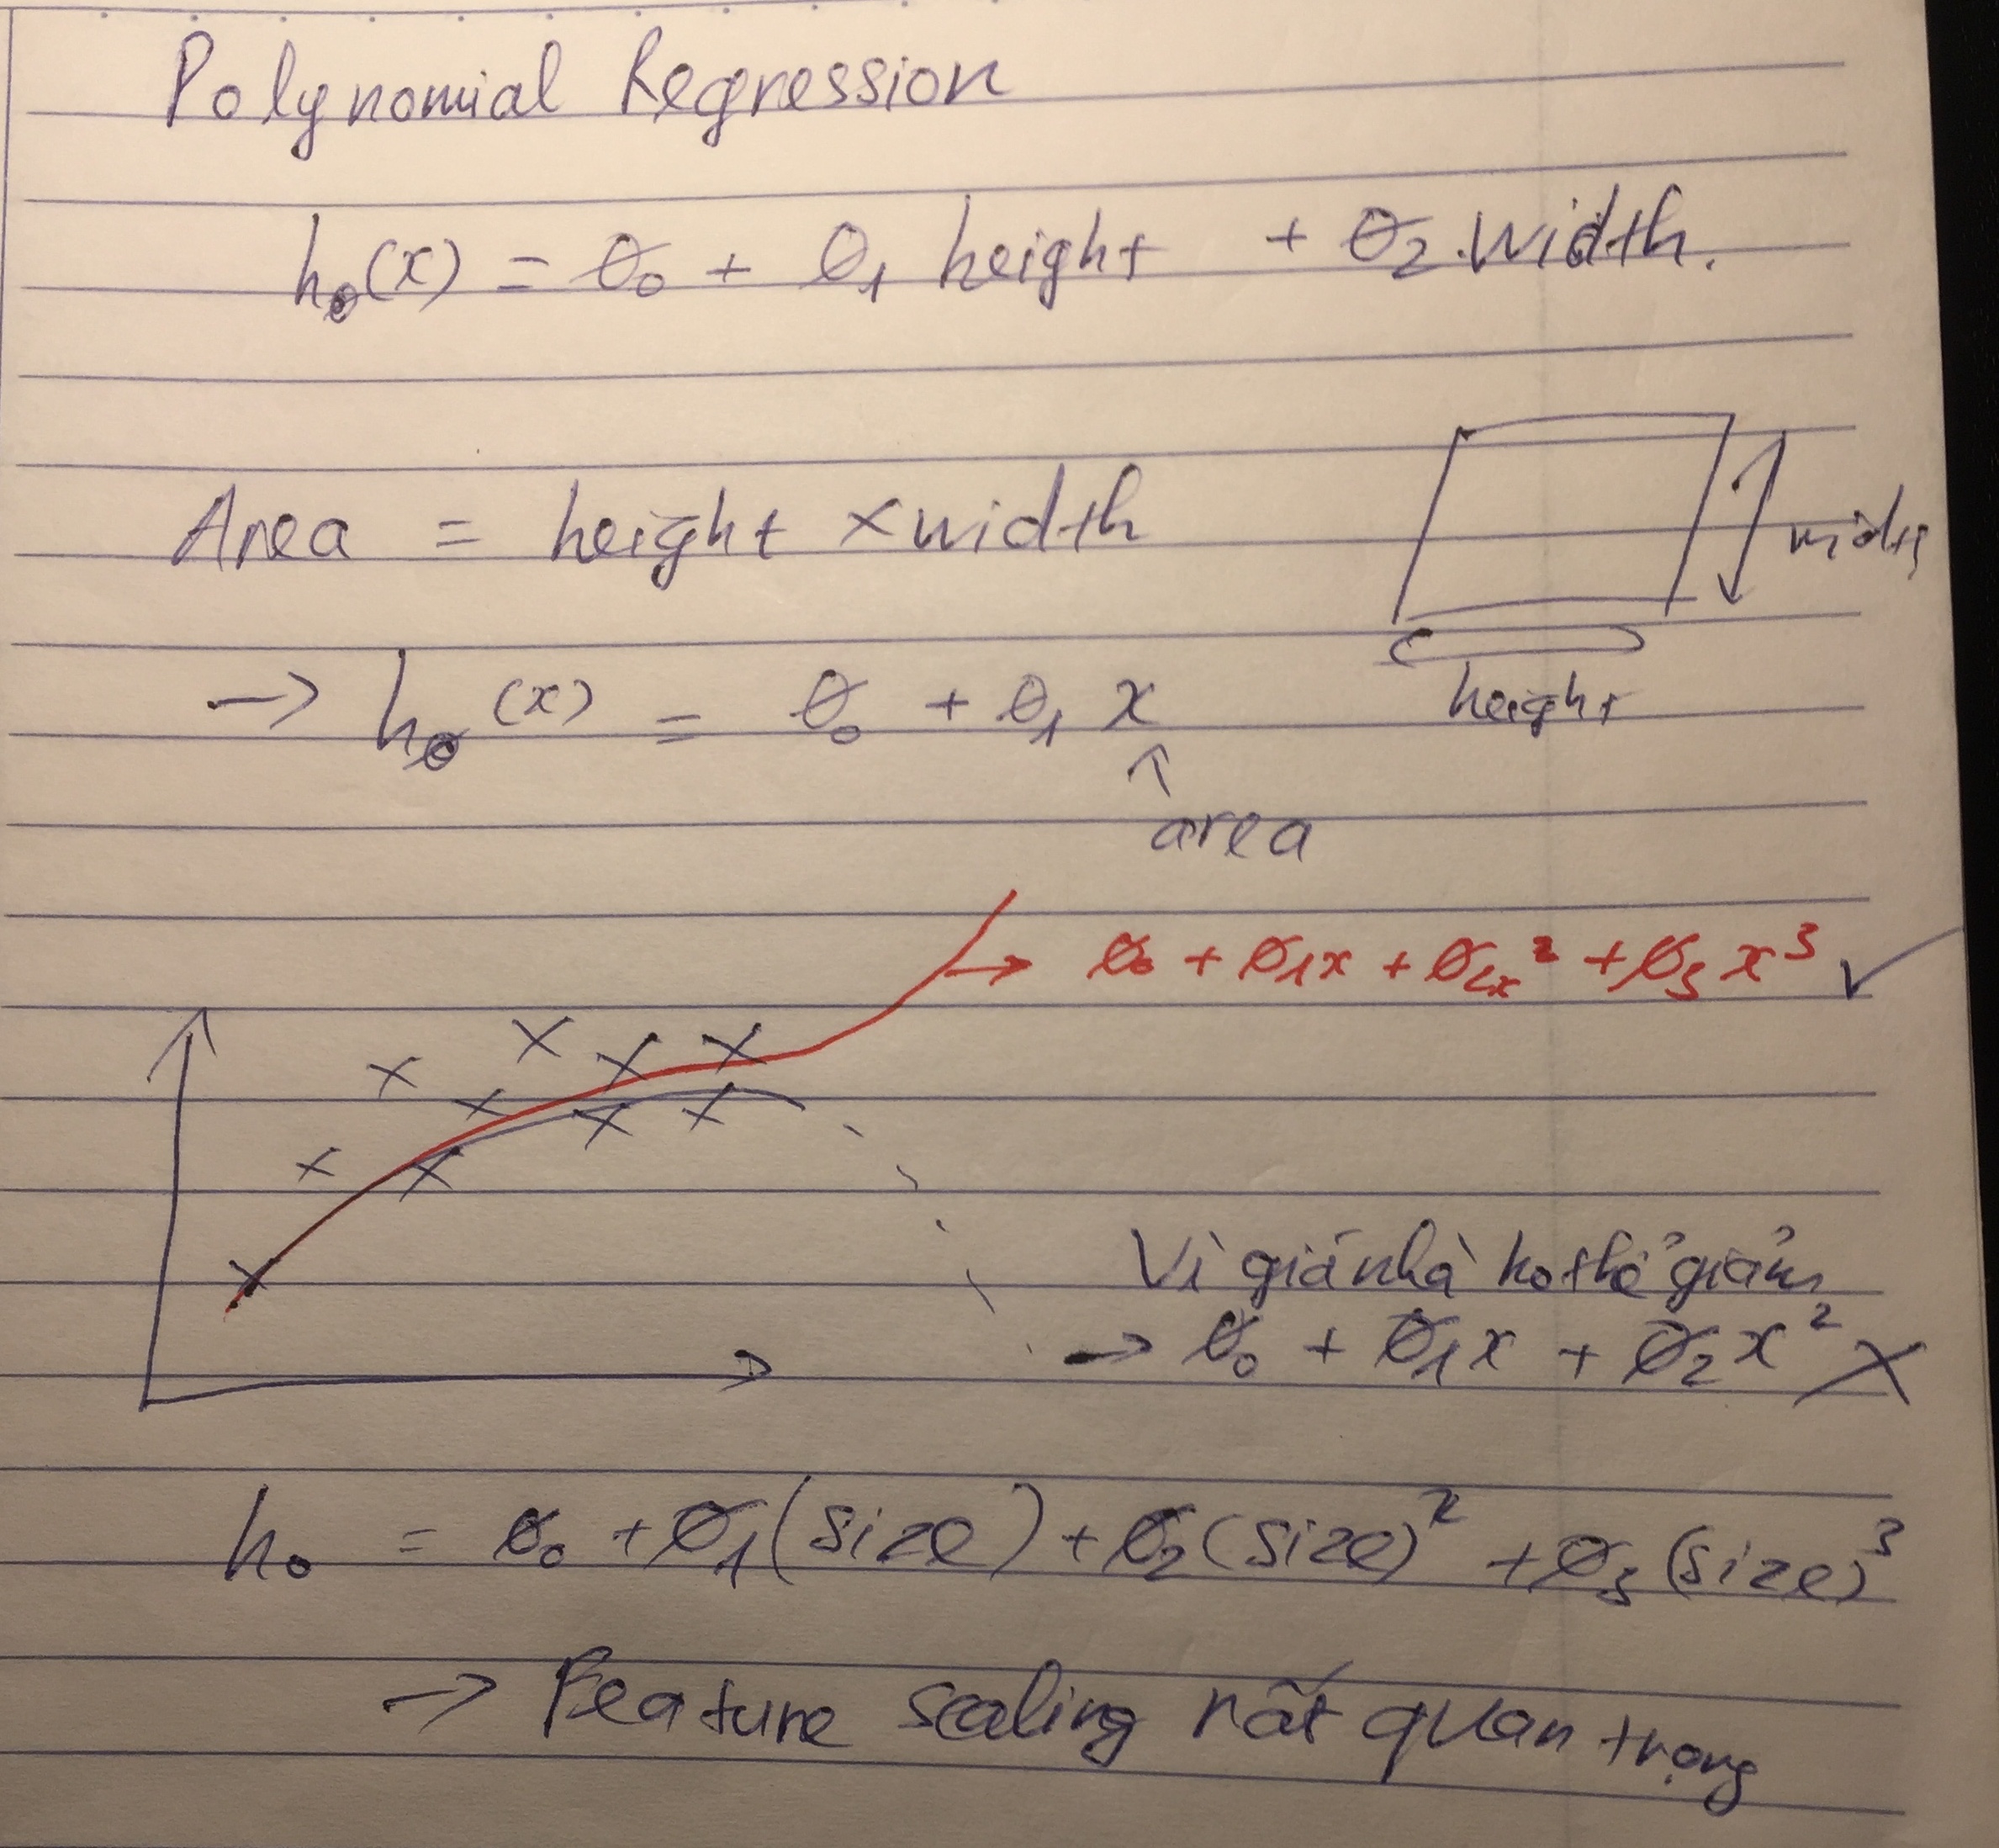 Polynomial Regression
hθ(x) = θ₀ + θ₁ height + θ₂.width.
Area = height × width
width
height
→ hθ(x) = θ₀ + θ₁ x
↑
area
→ θ₀ + θ₁x + θ₂x² + θ₃x³ ✓
Vì giá nhà ko thể giảm
→ θ₀ + θ₁x + θ₂x² ×
hθ = θ₀ + θ₁(size) + θ₂(size)² + θ₃(size)³
→ Feature scaling rất quan trọng